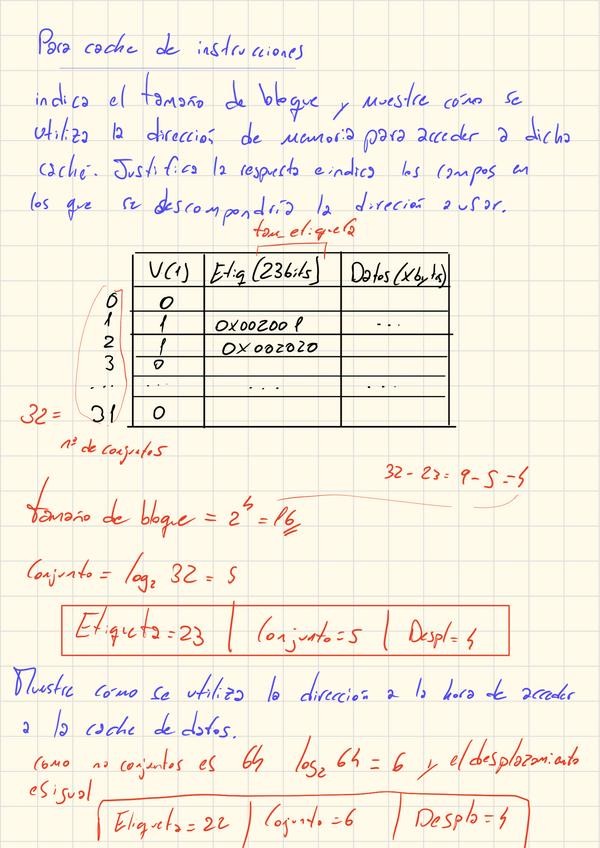 Para cache de instrucciones
indica el tamaño de bloque y muestre cómo se
utiliza la dirección de memoria para acceder a dicha
caché. Justifica la respuesta e indica los campos en
los que se descompondría la direción a usar.
tam etiqueta
V(1) Etiq (23bits) Datos (X bytes)
0 0
1 1 0X002001 ...
2 1 0X002020
3 0
... ... ... ...
32 = 31 0
nº de conjuntos
32 - 23 = 9 - 5 = 4
tamaño de bloque = 2^4 = 16
Conjunto = log₂ 32 = 5
Etiqueta = 23 | Conjunto = 5 | Despl = 4
Muestre cómo se utiliza la dirección a la hora de acceder
a la cache de datos.
como no conjuntos es 64 log₂ 64 = 6 y el desplazamiento
es igual
Etiqueta = 22 | Cojunto = 6 | Despla = 4